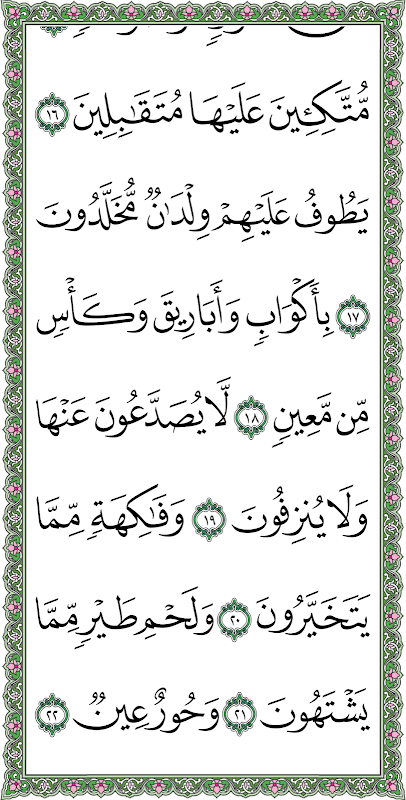 مُّتَّكِـِٔينَ عَلَيْهَا مُتَقَٰبِلِينَ ١٦
يَطُوفُ عَلَيْهِمْ وِلْدَٰنٌ مُّخَلَّدُونَ
١٧ بِأَكْوَابٍ وَأَبَارِيقَ وَكَأْسٍ
مِّن مَّعِينٍ ١٨ لَّا يُصَدَّعُونَ عَنْهَا
وَلَا يُنزِفُونَ ١٩ وَفَٰكِهَةٍ مِّمَّا
يَتَخَيَّرُونَ ٢٠ وَلَحْمِ طَيْرٍ مِّمَّا
يَشْتَهُونَ ٢١ وَحُورٌ عِينٌ ٢٢